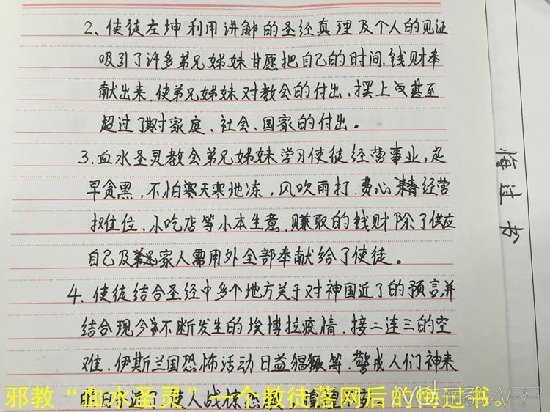 2、使徒左坤利用讲解的圣经真理及个人的见证
吸引了许多弟兄姊妹甘愿把自己的时间、钱财奉
献出来,使弟兄姊妹对教会的付出、摆上
超过了对家庭、社会、国家的付出。
3.血水圣灵教会弟兄姊妹学习使徒经营事业,起
早贪黑,不怕寒天地冻,风吹雨打,费心经营
小吃店等小本生意,赚取的钱财除了供应
自己及家人需用外全部奉献给了使徒。
4.使徒结合圣经中多个地方关于对神国近了的预言,并
结合现今不断发生的埃博拉疫情,接二连三的空
难、伊斯兰国恐怖活动日益猖獗等,警戒人们神来
的日
悔过书
邪教“血水圣灵”一个教徒落网后的悔过书。